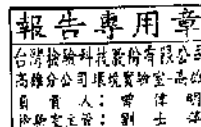 報告專用章
台灣檢驗科技股份有限公司
高雄分公司環境實驗室-高雄
負責人：
檢驗室主管：劉